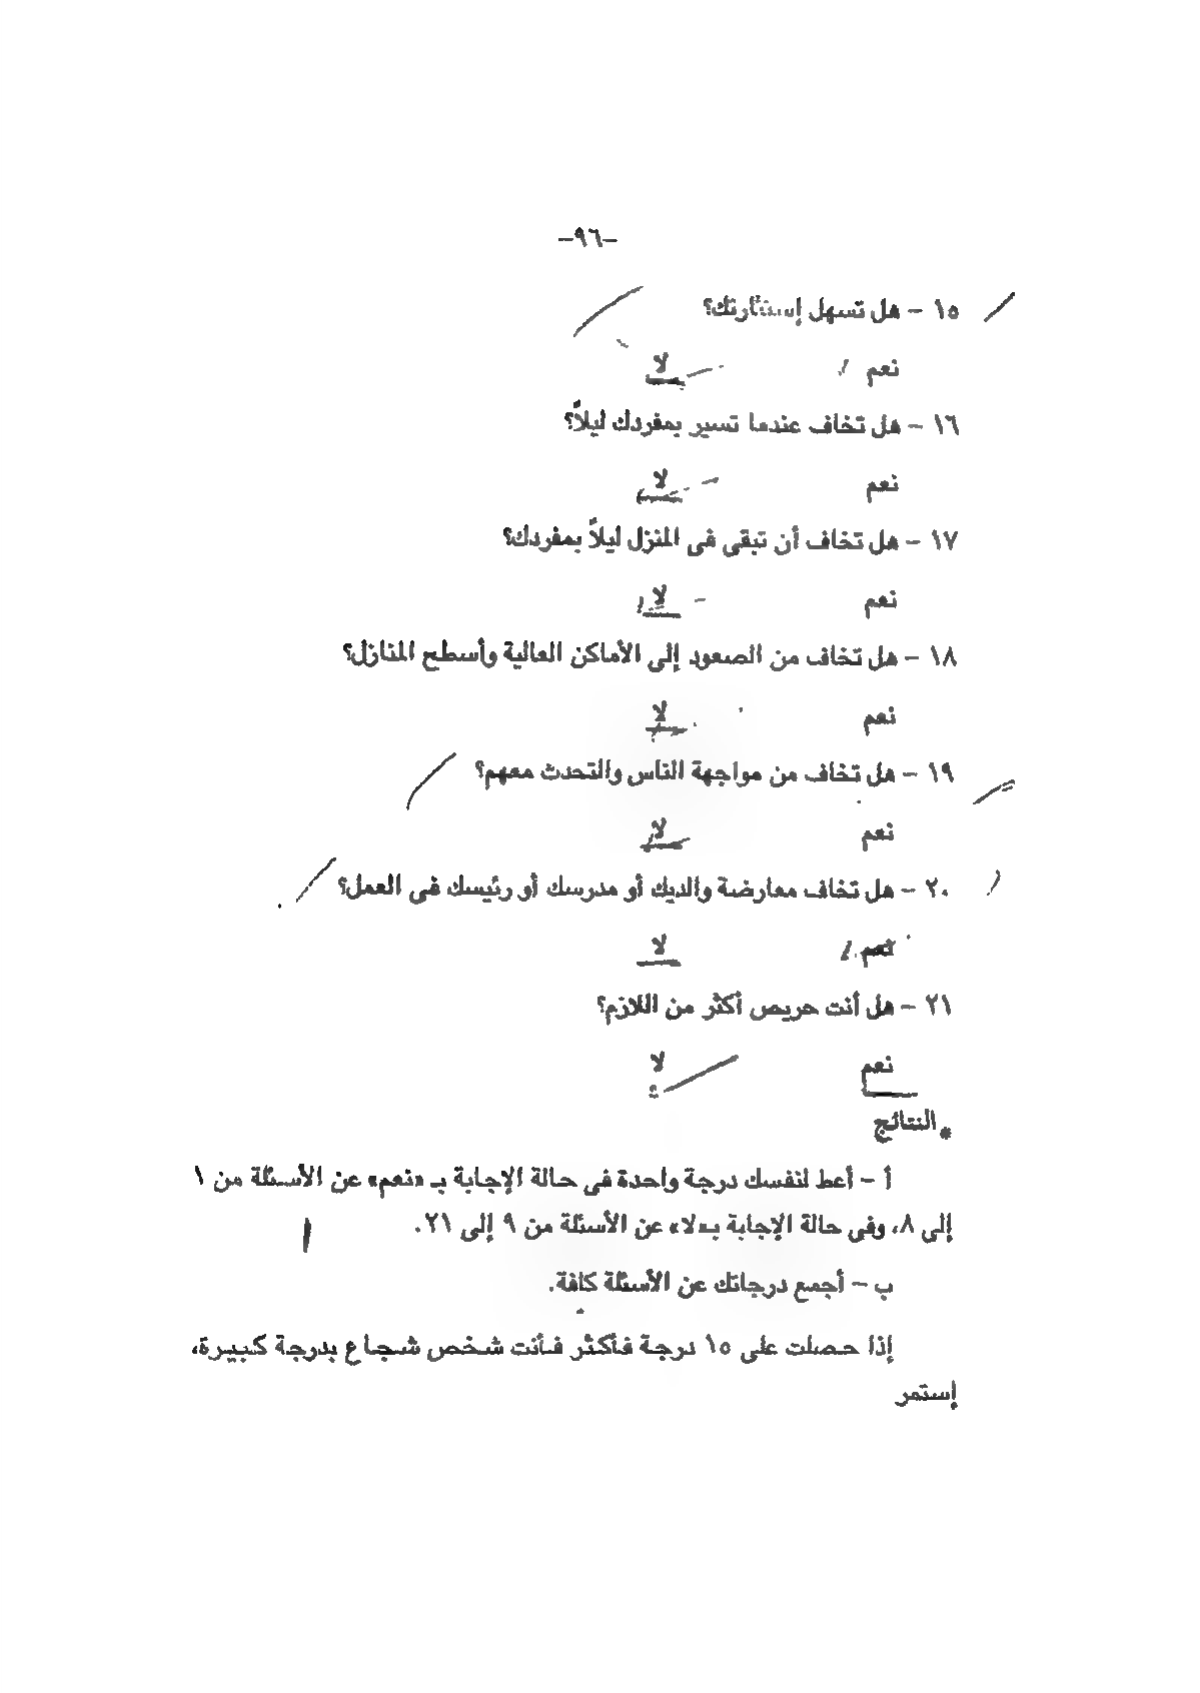 -٩٦-
١٥ - هل تسهل إستثارتك؟
نعم لا
١٦ - هل تخاف عندما تسير بمفردك ليلاً؟
نعم لا
١٧ - هل تخاف أن تبقى فى المنزل ليلاً بمفردك؟
نعم لا
١٨ - هل تخاف من الصعود إلى الأماكن العالية وأسطح المنازل؟
نعم لا
١٩ - هل تخاف من مواجهة الناس والتحدث معهم؟
نعم لا
٢٠ - هل تخاف معارضة والديك أو مدرسك أو رئيسك فى العمل؟
نعم لا
٢١ - هل أنت حريص أكثر من اللازم؟
نعم لا
* النتائج
أ - أعط لنفسك درجة واحدة فى حالة الإجابة بـ «نعم» عن الأسئلة من ١
إلى ٨، وفى حالة الإجابة بـ«لا» عن الأسئلة من ٩ إلى ٢١.
ب - أجمع درجاتك عن الأسئلة كافة.
إذا حصلت على ١٥ درجة فأكثر فأنت شخص شجاع بدرجة كبيرة،
إستمر